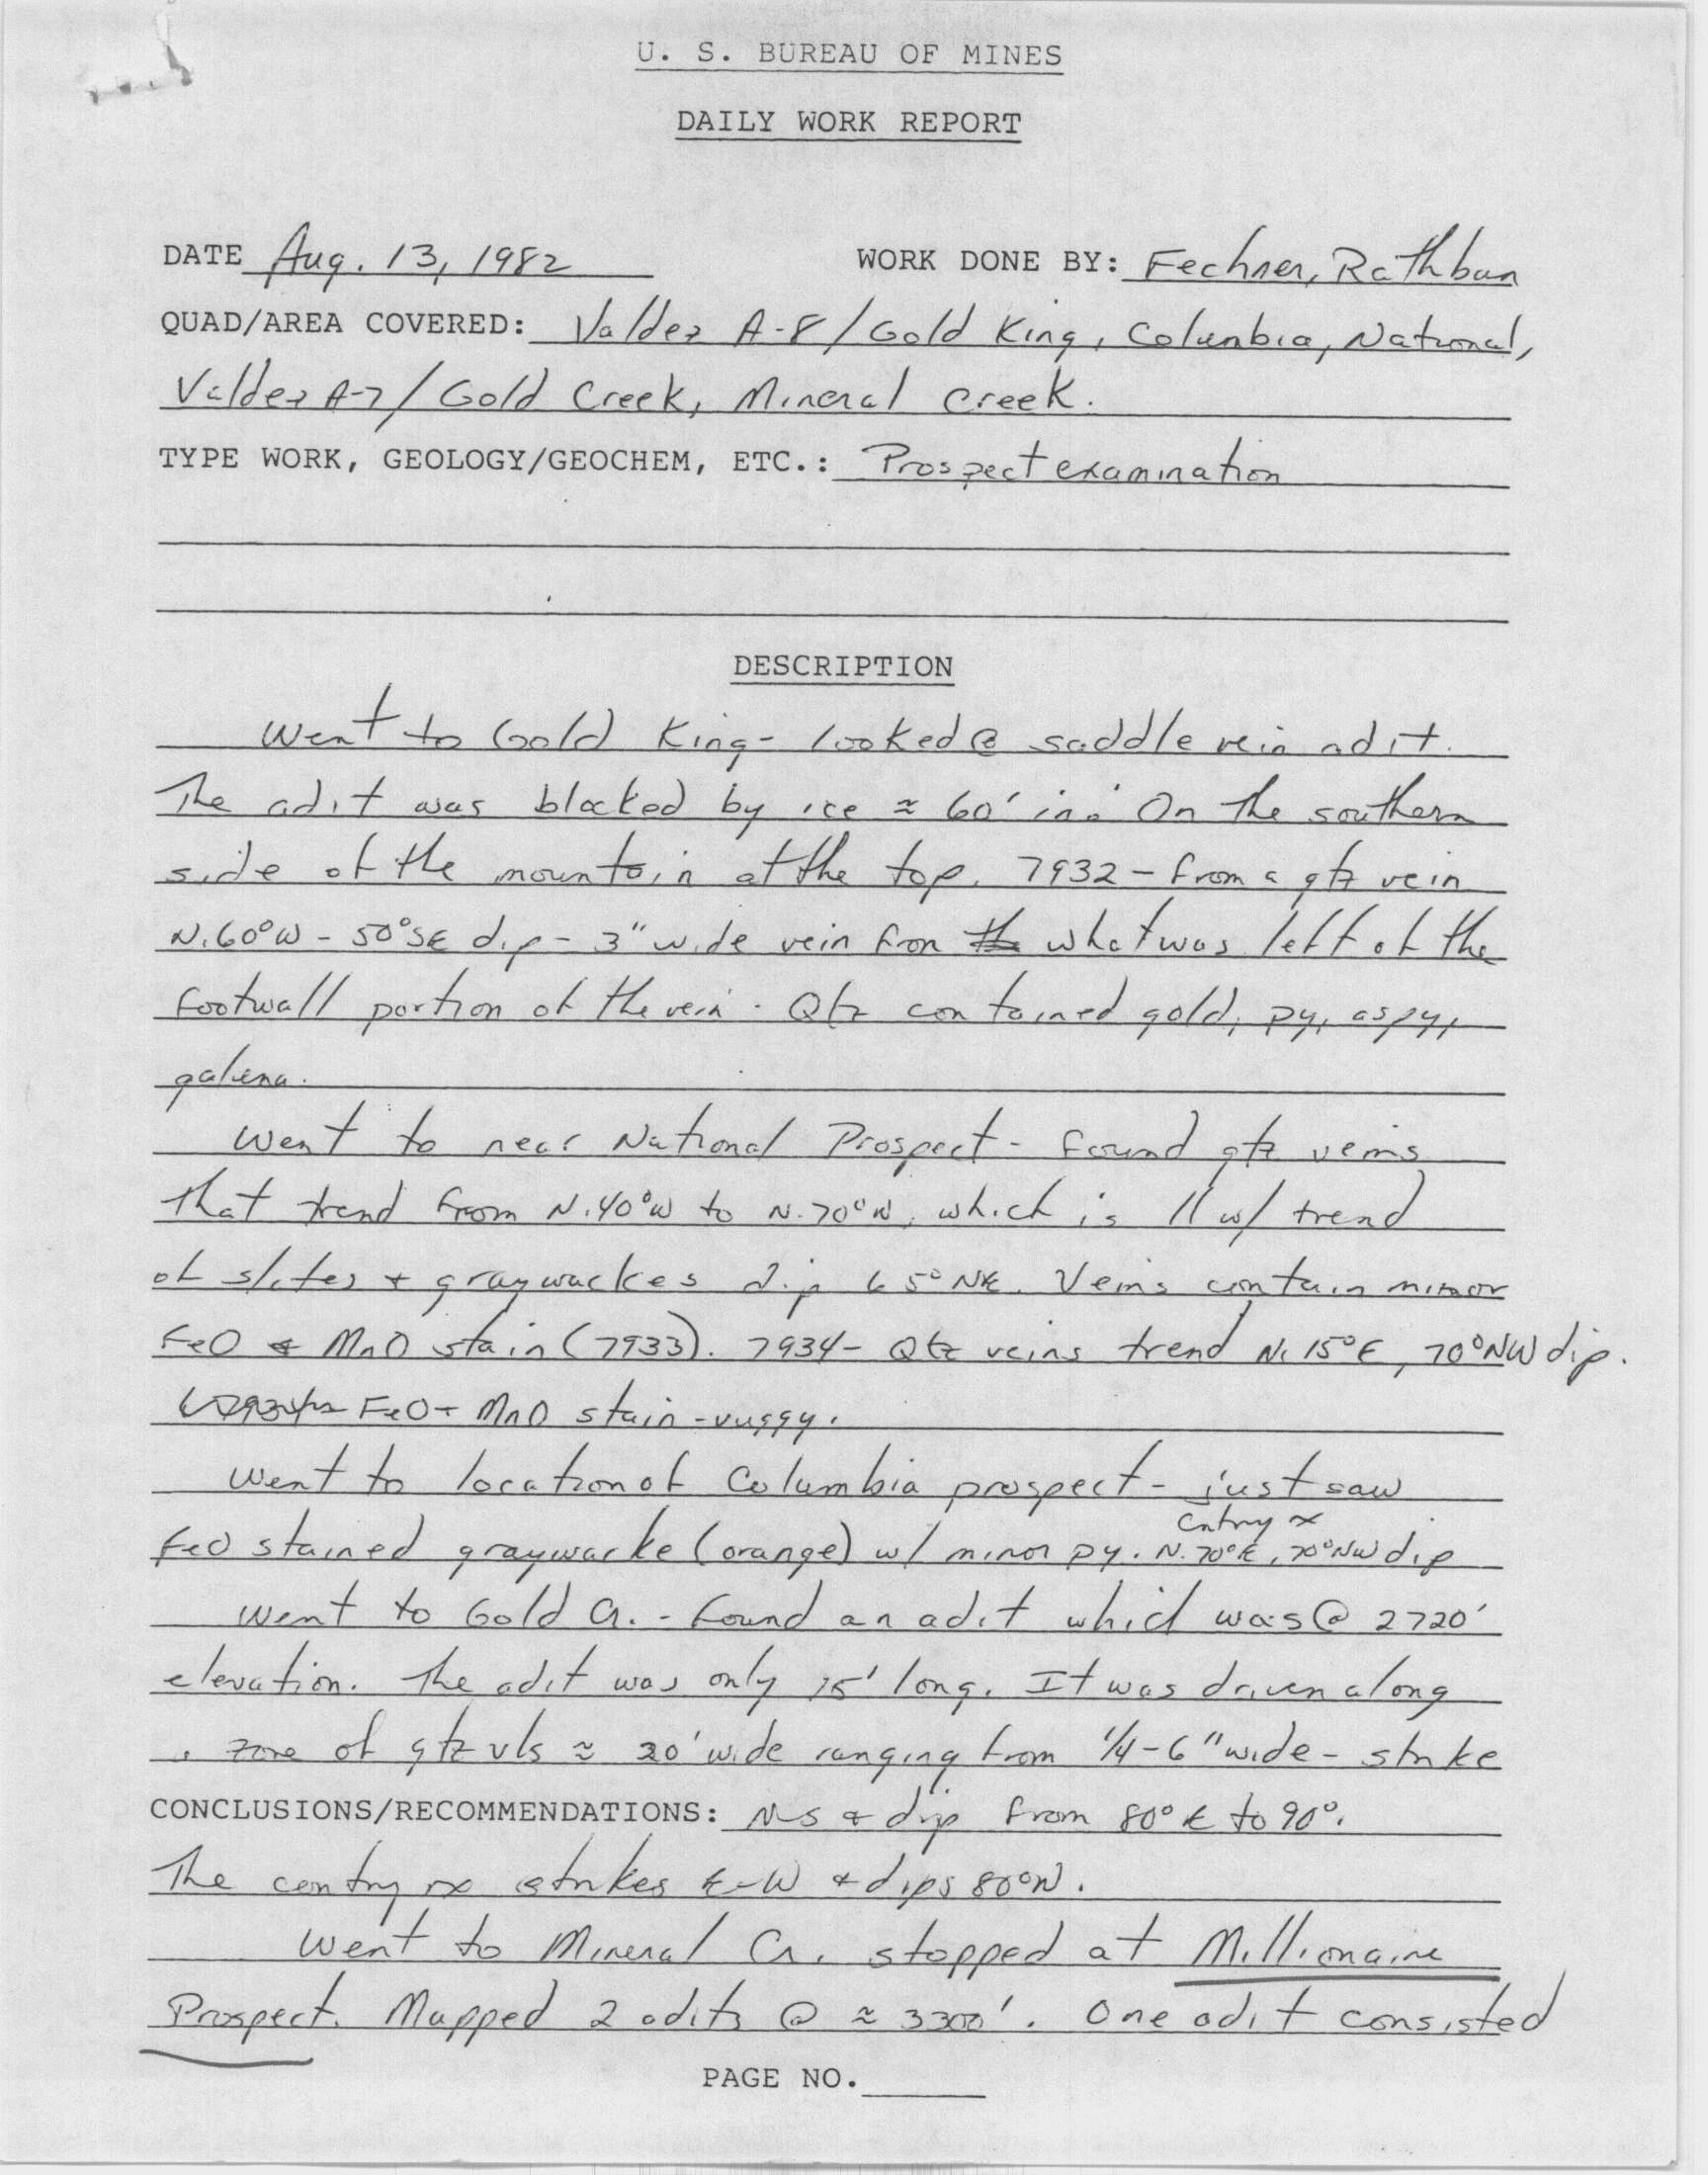 U. S. BUREAU OF MINES
DAILY WORK REPORT
DATE Aug. 13, 1982 WORK DONE BY: Fechner, Rathbun
QUAD/AREA COVERED: Valdez A-8/Gold King, Columbia, National,
Valdez A-7/Gold Creek, Mineral Creek.
TYPE WORK, GEOLOGY/GEOCHEM, ETC.: Prospect examination
DESCRIPTION
Went to Gold King - looked @ saddle vein adit.
The adit was blocked by ice ≈ 60' in. On the southern
side of the mountain at the top. 7932 - from a qtz vein
N.60°W - 50°SE dip - 3" wide vein from what was left of the
footwall portion of the vein. Qtz contained gold, py, aspy,
galena.
Went to near National Prospect - found qtz veins
that trend from N.40°W to N.70°W, which is // w/ trend
of slates + graywackes dip 65° NE. Veins contain minor
FeO & MnO stain (7933). 7934 - Qtz veins trend N.15°E, 70°NW dip.
FeO + MnO stain - vuggy.
Went to location of Columbia prospect - just saw
FeO stained graywacke (orange) w/ minor py. Cntry rx N.70°E, 70°NW dip
Went to Gold Cr. - found an adit which was @ 2720'
elevation. The adit was only 15' long. It was driven along
a zone of qtz vls ≈ 20' wide ranging from 1/4 - 6" wide - strike
CONCLUSIONS/RECOMMENDATIONS: N-S & dip from 80°E to 90°.
The contry rx strikes E-W + dips 80°N.
Went to Mineral Cr. stopped at Millionaire
Prospect. Mapped 2 adits @ ≈ 3300'. One adit consisted
PAGE NO.